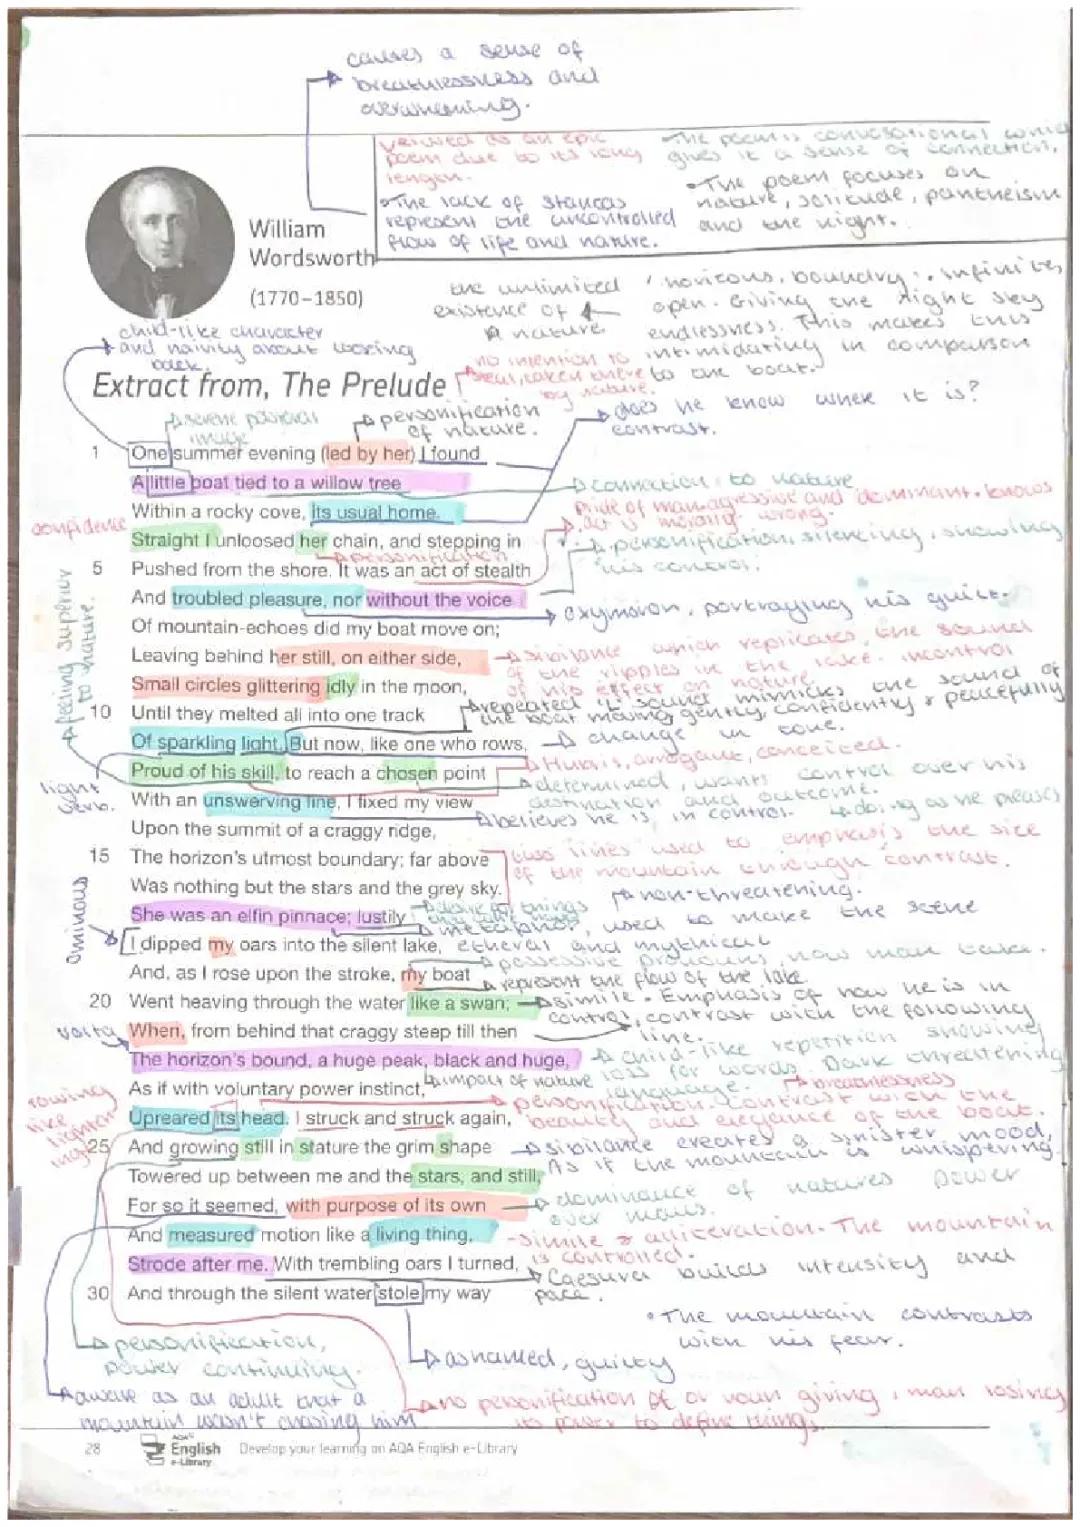 causes a sense of
breathlessness and
overwhelming.
viewed as an epic
poem due to its long
length.
• The lack of stanzas
represent the uncontrolled
flow of life and nature.
• The poem is conversational which
gives it a sense of connection.
• The poem focuses on
nature, solitude, pantheism
and the night.
William
Wordsworth
(1770–1850)
the unlimited
existence of
nature
'horizons, boundry': infinite,
open. Giving the night sky
endlessness. This makes this
intimidating in comparison
to the boat.
child-like character
and naivity about looking
back.
no intention to
steal, taken there
by nature.
Extract from, The Prelude
serene pastoral
image
personification
of nature.
does he know where it is?
contrast.
1 One summer evening (led by her) I found
A little boat tied to a willow tree
connection to nature
Within a rocky cove, its usual home.
pride of man. agressive and dominant. knows
act is morally wrong.
confidence
Straight I unloosed her chain, and stepping in
personification
personification, silencing, showing
his control.
5 Pushed from the shore. It was an act of stealth
And troubled pleasure, nor without the voice
oxymoron, portraying his guilt.
Of mountain-echoes did my boat move on;
feeling superior
to nature.
Leaving behind her still, on either side,
sibilance which replicates the sound
of the ripples in the lake. incontrol
of his effect on nature.
Small circles glittering idly in the moon,
repeated 'L' sound mimicks the sound of
the boat moving gently, confidently & peacefully
10 Until they melted all into one track
Of sparkling light. But now, like one who rows,
change in tone.
Proud of his skill, to reach a chosen point
Hubris, arrogant, conceited.
determined, wants control over his
destination and outcome.
light
verb.
With an unswerving line, I fixed my view
believes he is in control.
doing as he pleases
Upon the summit of a craggy ridge,
15 The horizon's utmost boundary; far above
two lines used to emphasis the size
of the mountain through contrast.
Was nothing but the stars and the grey sky.
non-threatening.
She was an elfin pinnace; lustily
metaphor, used to make the scene
etheral and mythical
ominous
I dipped my oars into the silent lake,
possessive pronouns, now man take.
And, as I rose upon the stroke, my boat
represent the flow of the lake
20 Went heaving through the water like a swan;
simile. Emphasis of how he is in
control, contrast with the following
line.
volta
When, from behind that craggy steep till then
The horizon's bound, a huge peak, black and huge,
child-like repetition showing
loss for words. Dark threatening
language.
As if with voluntary power instinct,
impact of nature
breathlessness
personification. Contrast with the
beauty and elegance of the boat.
Upreared its head. I struck and struck again,
rowing
like
25 And growing still in stature the grim shape
sibilance creates a sinister mood,
As if the mountain is whispering.
Towered up between me and the stars, and still,
dominance of natures power
over mans.
For so it seemed, with purpose of its own
And measured motion like a living thing,
-simile & alliteration. The mountain
is controlled.
Strode after me. With trembling oars I turned,
Caesura builds intensity and
pace.
30 And through the silent water stole my way
• The mountain contrasts
with his fear.
personification,
power continuing.
ashamed, guilty
aware as an adult that a
mountain wasn't chasing him
no personification of or noun giving, man losing
its power to define things.
28
AQA
English
e-Library
Develop your learning on AQA English e-Library